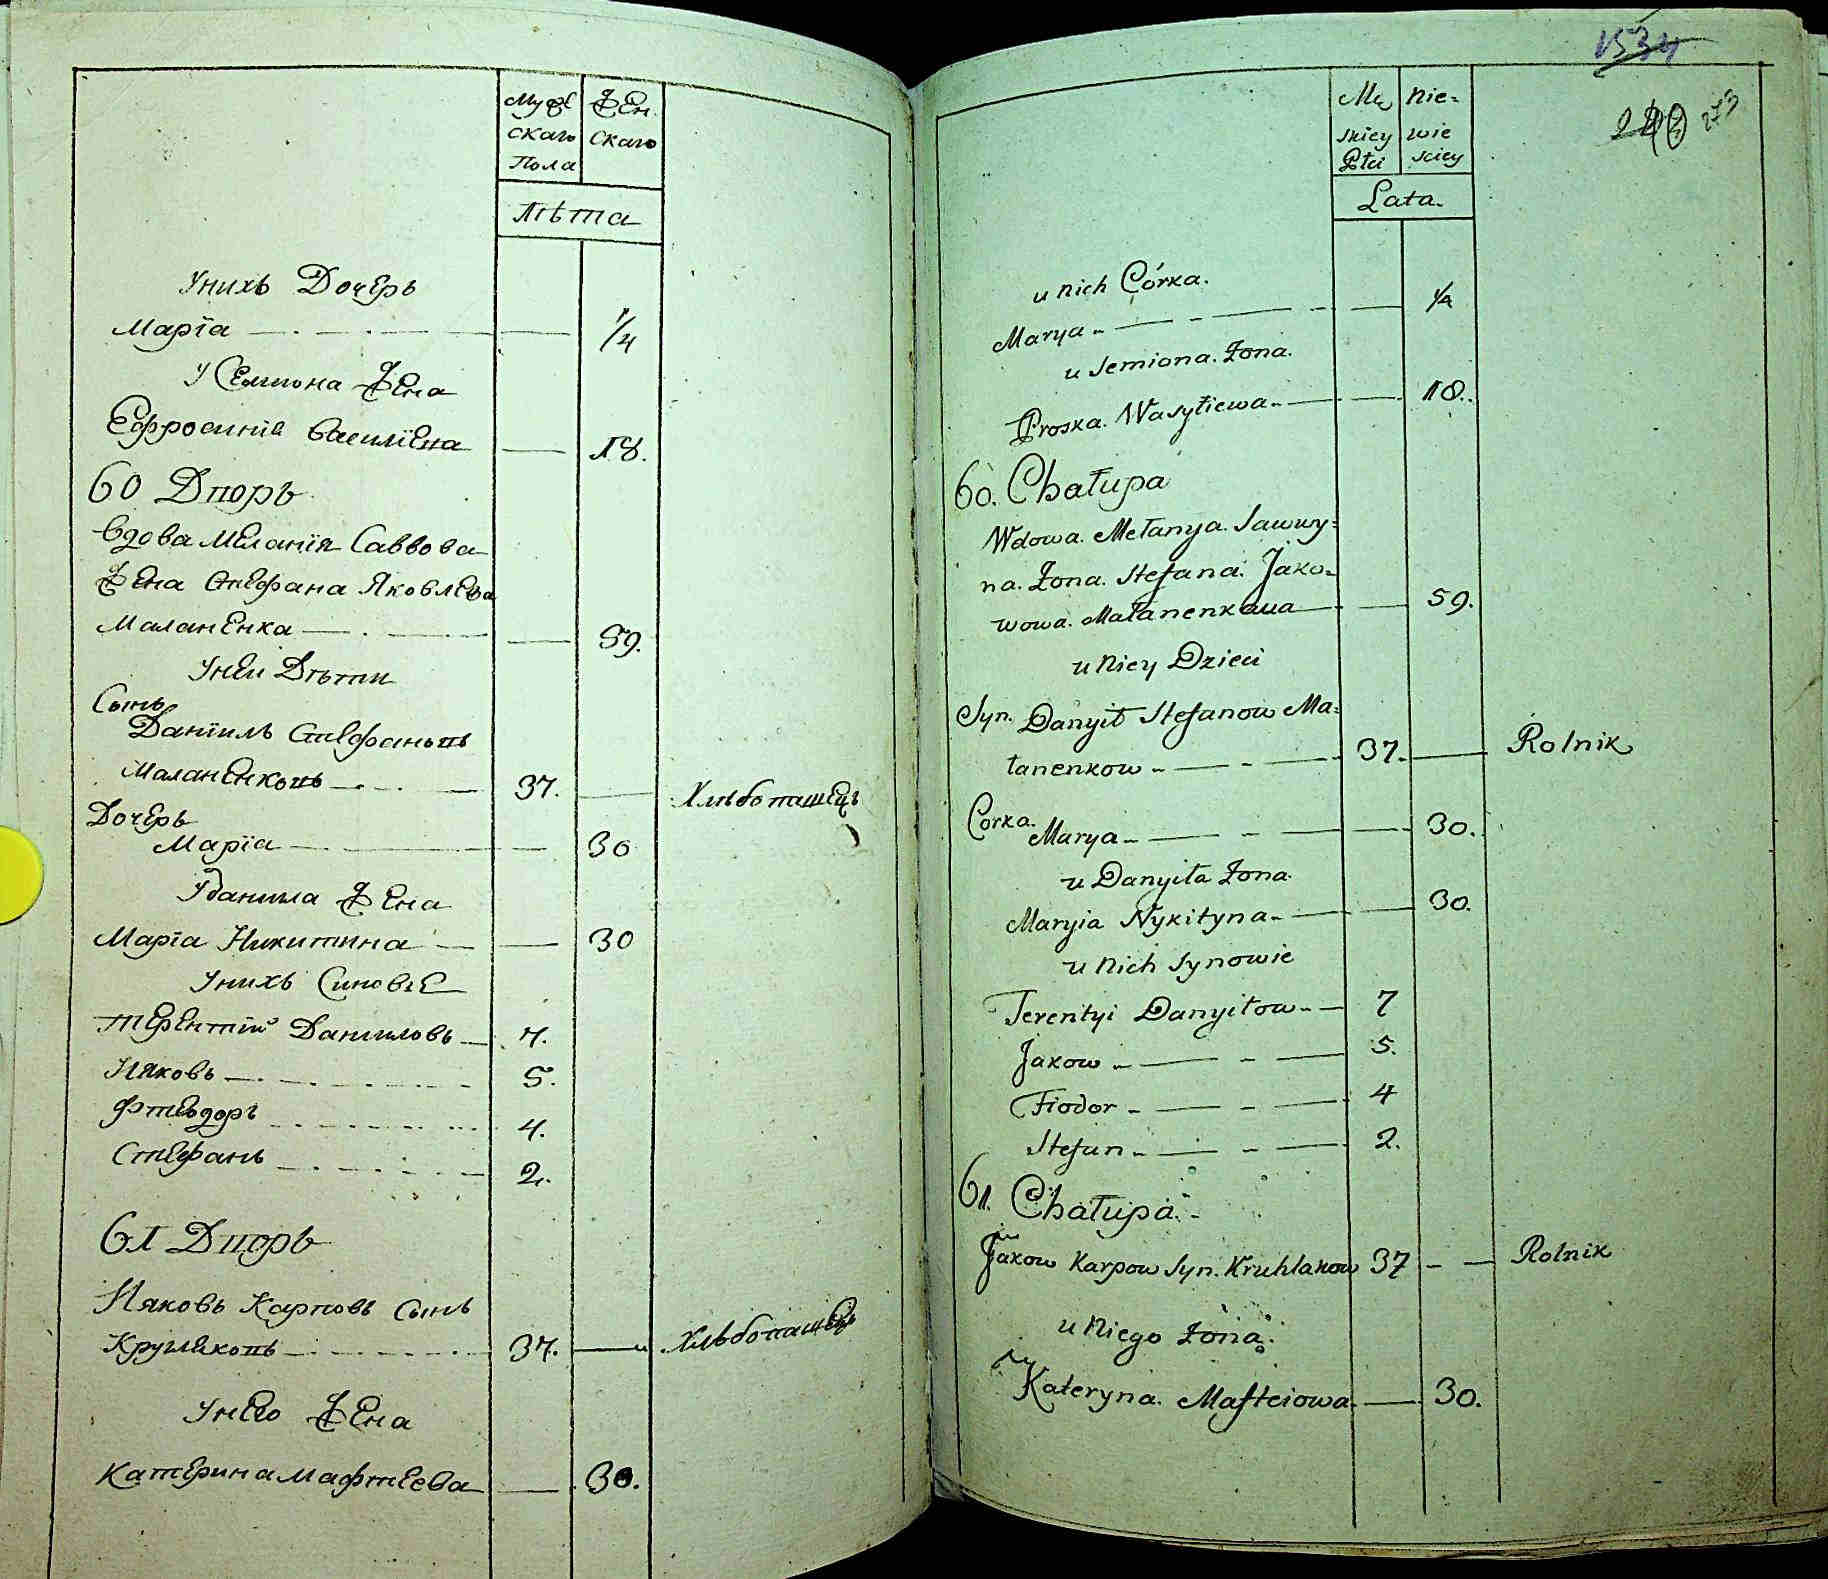 Мужескаго Пола
Женскаго
Лѣта
Унихъ Дочерь
Марїа
1/4
У Семиона Жена
Ефросинїа Василїева
18.
60 Дворъ
Вдова Меланїя Саввова
Жена Стефана Яковлева
Маланенка
59.
Уней Дѣти
Сынъ
Данїилъ Стефановъ
Маланенковъ
37.
Хлѣбопашецъ
Дочерь
Марїа
30
Уданила Жена
Марїа Никитина
30
Унихъ Синовье
Терентїй Даниловъ
7.
Ияковъ
5.
Фтеодоръ
4.
Стефанъ
2.
61 Дворъ
Ияковъ Карповъ Сынъ
Кругляковъ
37.
Хлѣбопашецъ
Унего Жена
Катерина Мафтеева
30.
1534
273
Mę
skiey
Płci
Nie=
wie
sciey
Lata.
u nich Córka.
Marya
1/4
u Semiona. Żona.
Proska. Wasyliewa
18.
60. Chałupa
Wdowa. Mełanya. Sawwy=
na. Żona. Stefana. Jako=
wowa. Małanenkowa
59.
u Niey Dzieci
Syn. Danyił Stefanow Ma=
łanenkow
37.
Rolnik
Corka.
Marya
30.
u Danyiła Żona.
Maryia Nykityna
30.
u Nich Synowie
Terentyi Danyiłow
7
Jakow
5.
Fiodor
4
Stefan
2.
61. Chałupa.
Jakow Karpow Syn. Kruhlakow
37
Rolnik
u Niego Żona.
Kateryna. Mafteiowa
30.